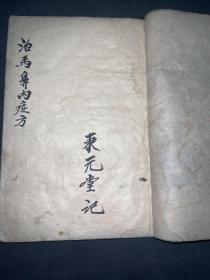 東元堂記
治馬鼻内症方